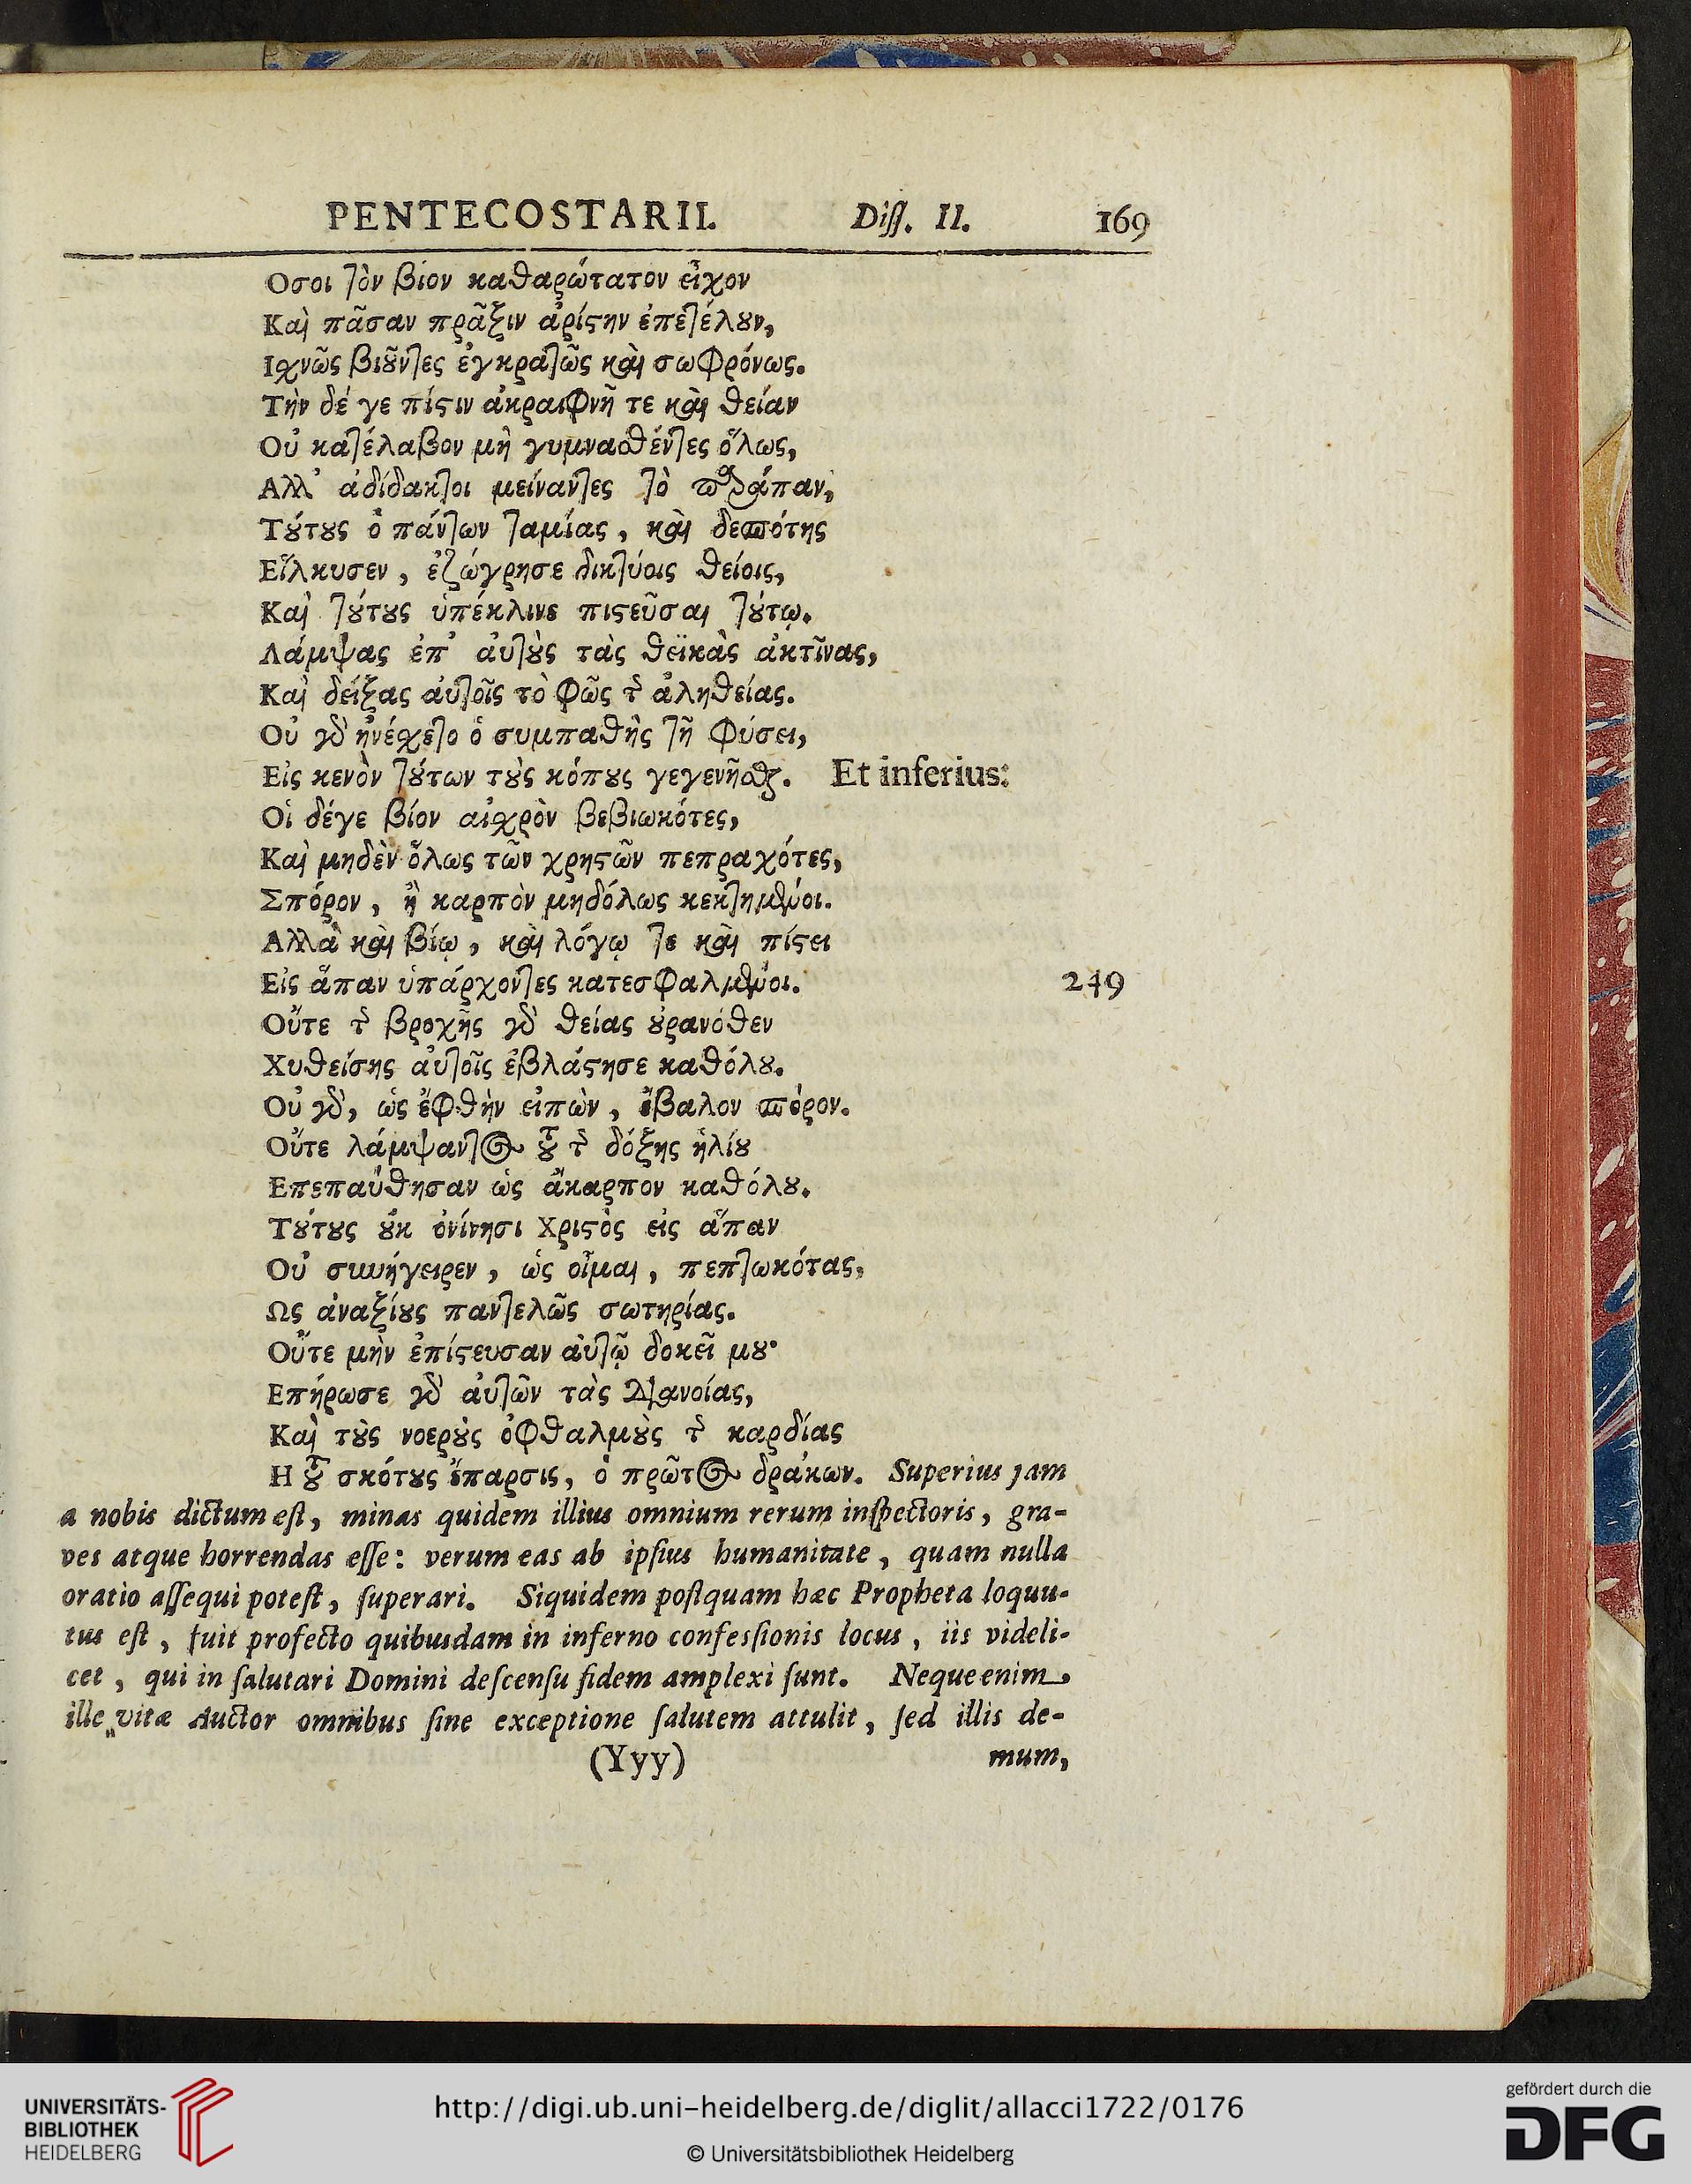 PENTECOSTARII. Diſſ. II. 169
Οσοι τὸν βίον καθαρώτατον εἶχον
Καὶ πᾶσαν πρᾶξιν ἀρίϛην ἐπετέλȣν,
Ιχνῶς βιȣ̃ντες ἐγκρατῶς καὶ σωφρόνως.
Τὴν δέ γε πίϛιν ἀκραιφνῆ τε καὶ θείαν
Οὐ κατέλαβον μὴ γυμνασθέντες ὅλως,
Αλλ' ἀδίδακτοι μείναντες τὸ παράπαν,
Τȣ́τȣς ὁ πάντων ταμίας, καὶ δεσπότης
Εἵλκυσεν, ἐζώγρησε δικτύοις θείοις,
Καὶ τȣ́τȣς ὑπέκλινε πιϛεῦσαι τȣ́τῳ.
Λάμψας ἐπ' ἀυτȣ̀ς τὰς θεϊκὰς ἀκτῖνας,
Καὶ δείξας ἀυτοῖς τὸ φῶς τῆς ἀληθείας.
Οὐ γὰρ ἠνέχετο ὁ συμπαθὴς τῇ φύσει,
Εἰς κενὸν τȣ́των τȣ̀ς κόπȣς γεγενῆσθαι. Et inferius:
Οἱ δέγε βίον αἰσχρὸν βεβιωκότες,
Καὶ μηδὲν ὅλως τῶν χρηϛῶν πεπραχότες,
Σπόρον, ἢ καρπὸν μηδόλως κεκτημένοι.
Αλλὰ καὶ βίῳ, καὶ λόγῳ τε καὶ πίϛει
Εἰς ἅπαν ὑπάρχοντες κατεσφαλμένοι. 249
Οὔτε τῆς βροχῆς γὰρ θείας ȣ̓ρανόθεν
Χυθείσης ἀυτοῖς ἐβλάϛησε καθόλȣ.
Οὐ γὰρ, ὡς ἔφθην εἰπὼν, ἔβαλον σπόρον.
Οὔτε λάμψαντος τȣ̃ τῆς δόξης ἡλίȣ
Επεπαύθησαν ὡς ἄκαρπον καθόλȣ.
Τȣ́τȣς ȣ̓κ ὀνίνησι Χριϛὸς εἰς ἅπαν
Οὐ συνήγειρεν, ὡς οἶμαι, πεπτωκότας,
Ως ἀναξίȣς παντελῶς σωτηρίας.
Οὔτε μὴν ἐπίϛευσαν ἀυτῷ δοκεῖ μȣ·
Επήρωσε γὰρ ἀυτῶν τὰς διανοίας,
Καὶ τȣ̀ς νοερȣ̀ς ὀφθαλμȣ̀ς τῆς καρδίας
Η τȣ̃ σκότȣς ἔπαρσις, ὁ πρῶτος δράκων. Superius jam
a nobis dictum eſt, minas quidem illius omnium rerum inſpectoris, gra-
ves atque horrendas eſſe: verum eas ab ipſius humanitate, quam nulla
oratio aſſequi poteſt, ſuperari. Siquidem poſtquam hæc Propheta loquu-
tus eſt, fuit profecto quibusdam in inferno confeſſionis locus, iis videli-
cet, qui in ſalutari Domini deſcenſu fidem amplexi ſunt. Neque enim
ille vitæ Auctor omnibus ſine exceptione ſalutem attulit, ſed illis de-
(Yyy) mum,
UNIVERSITÄTS-
BIBLIOTHEK
HEIDELBERG
http://digi.ub.uni-heidelberg.de/diglit/allacci1722/0176
© Universitätsbibliothek Heidelberg
gefördert durch die
DFG